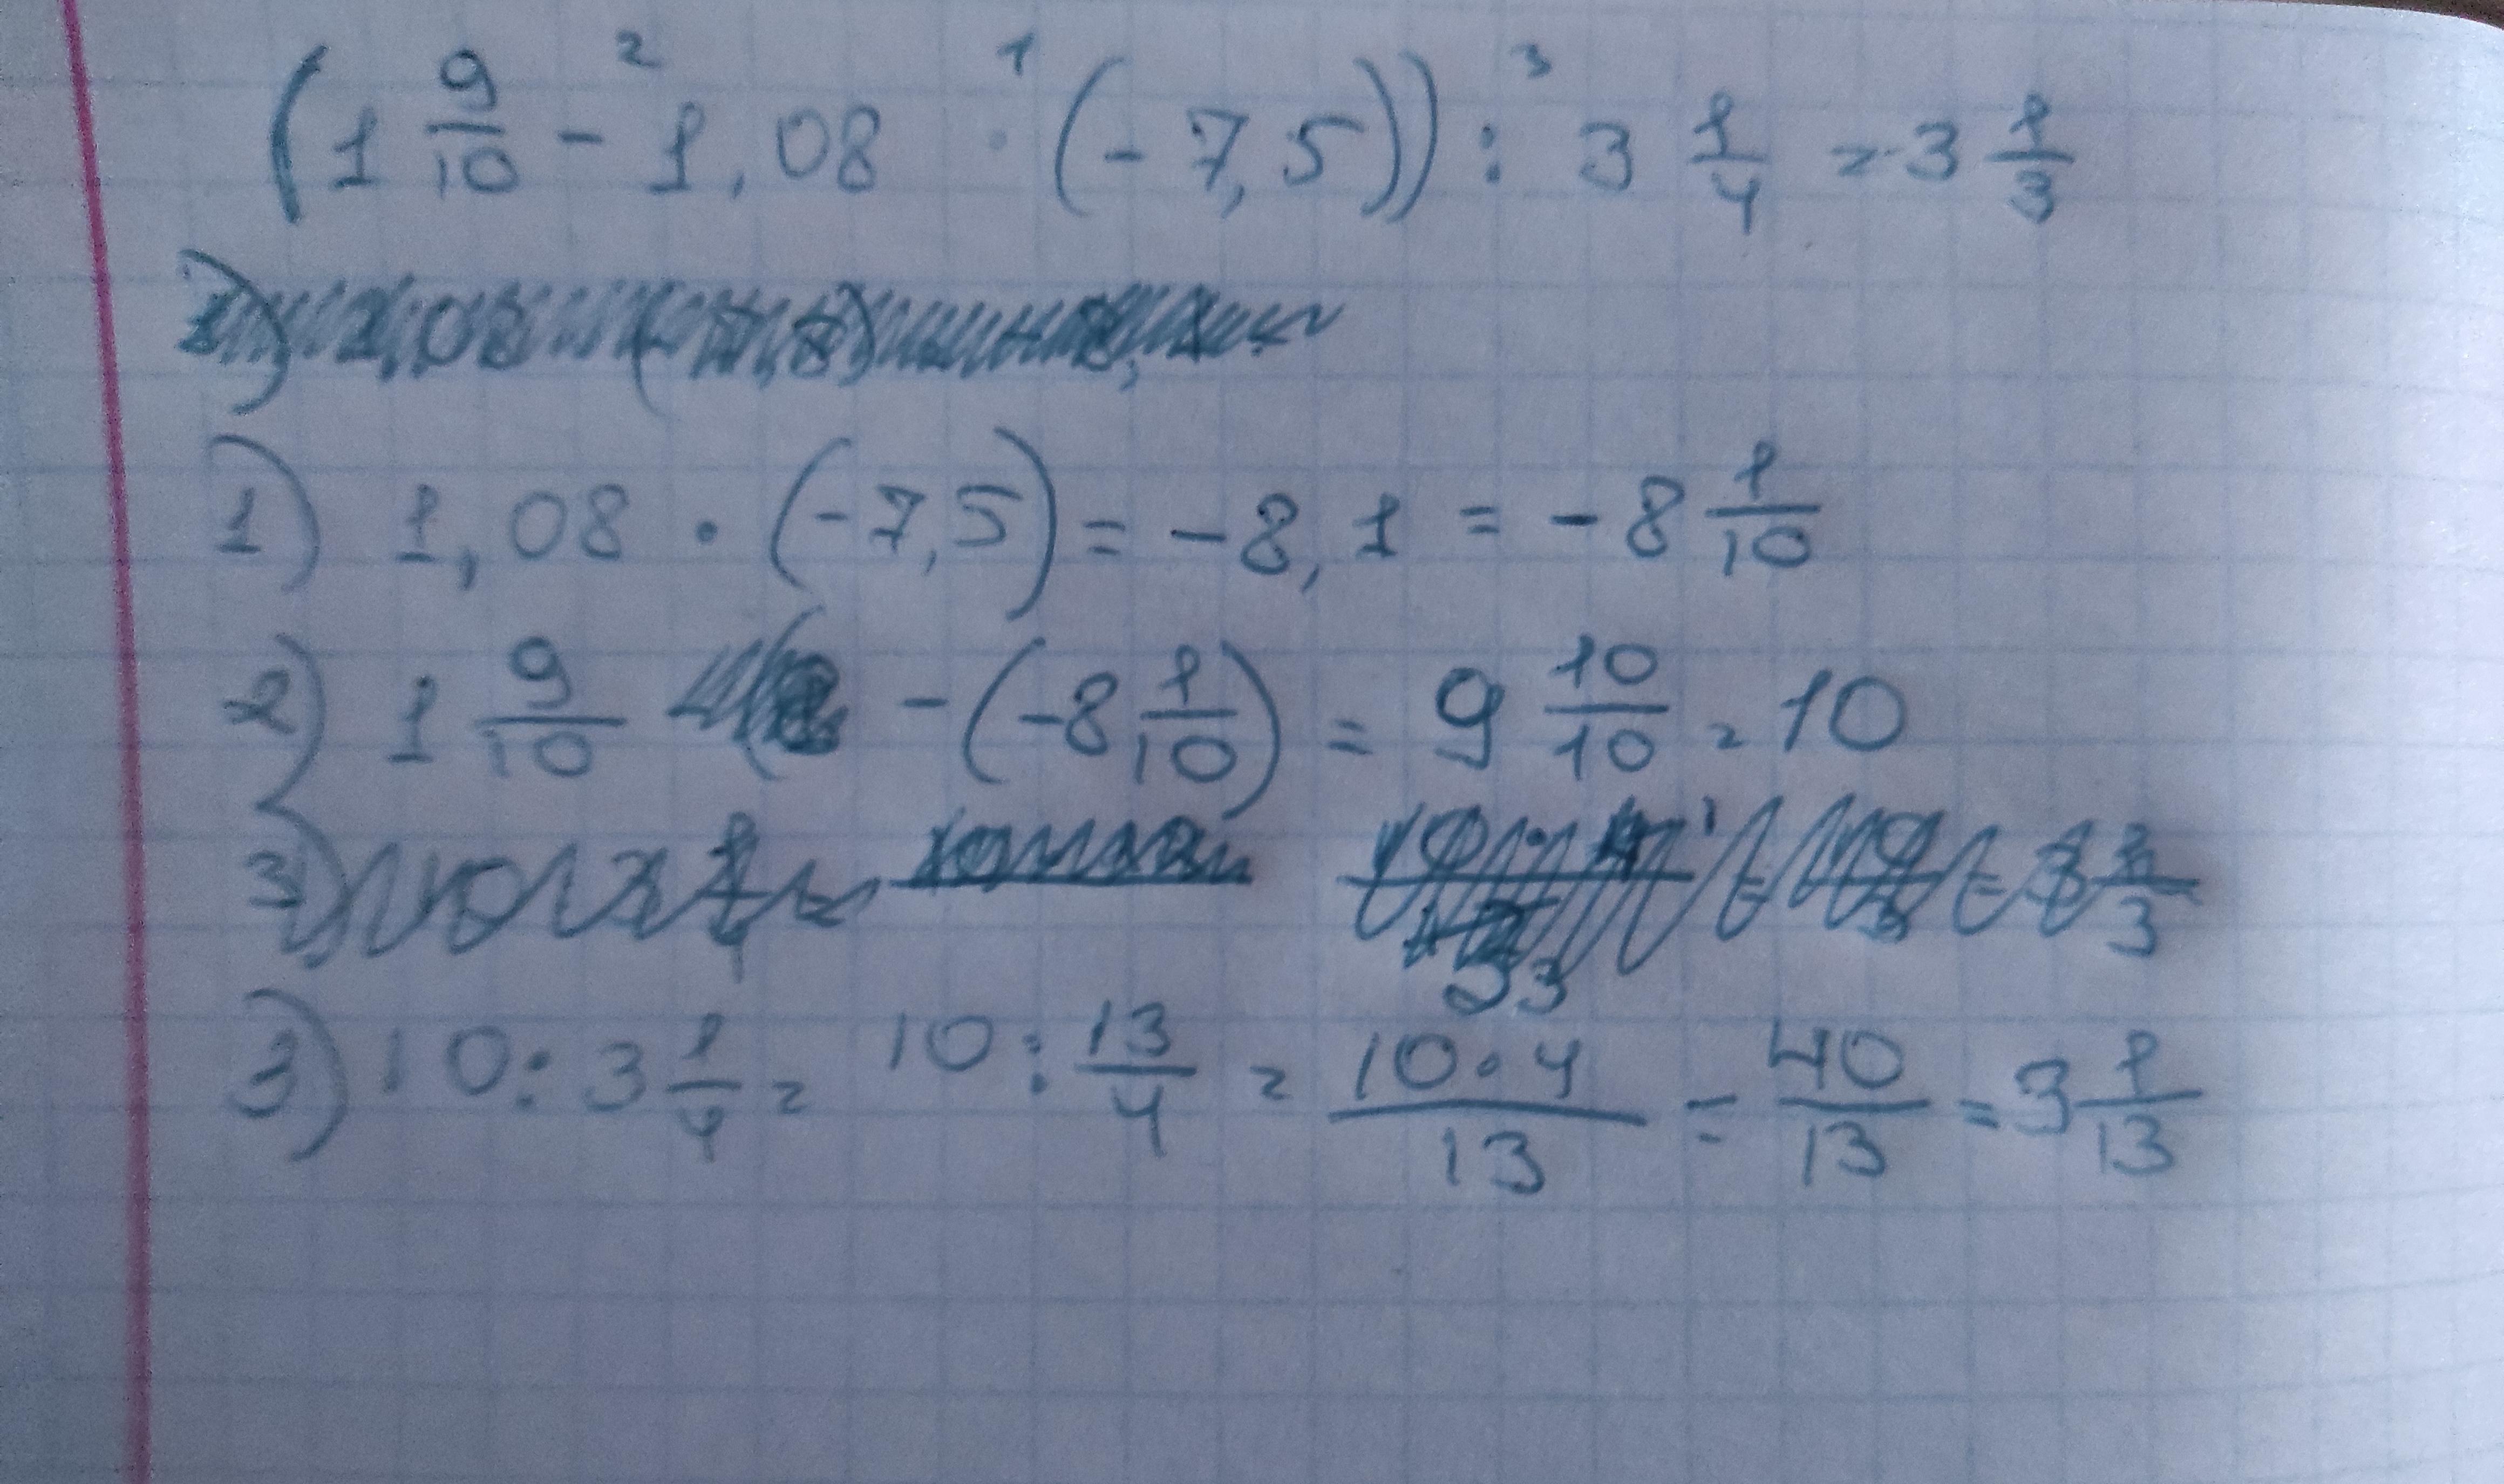 (1 9/10 - 1,08 · (-7,5)) : 3 1/4 = 3 1/3
1) 1,08 · (-7,5) = -8,1 = -8 1/10
2) 1 9/10 - (-8 1/10) = 9 10/10 = 10
3) 10 : 3 1/4 = 10 : 13/4 = 10·4/13 = 40/13 = 3 1/13